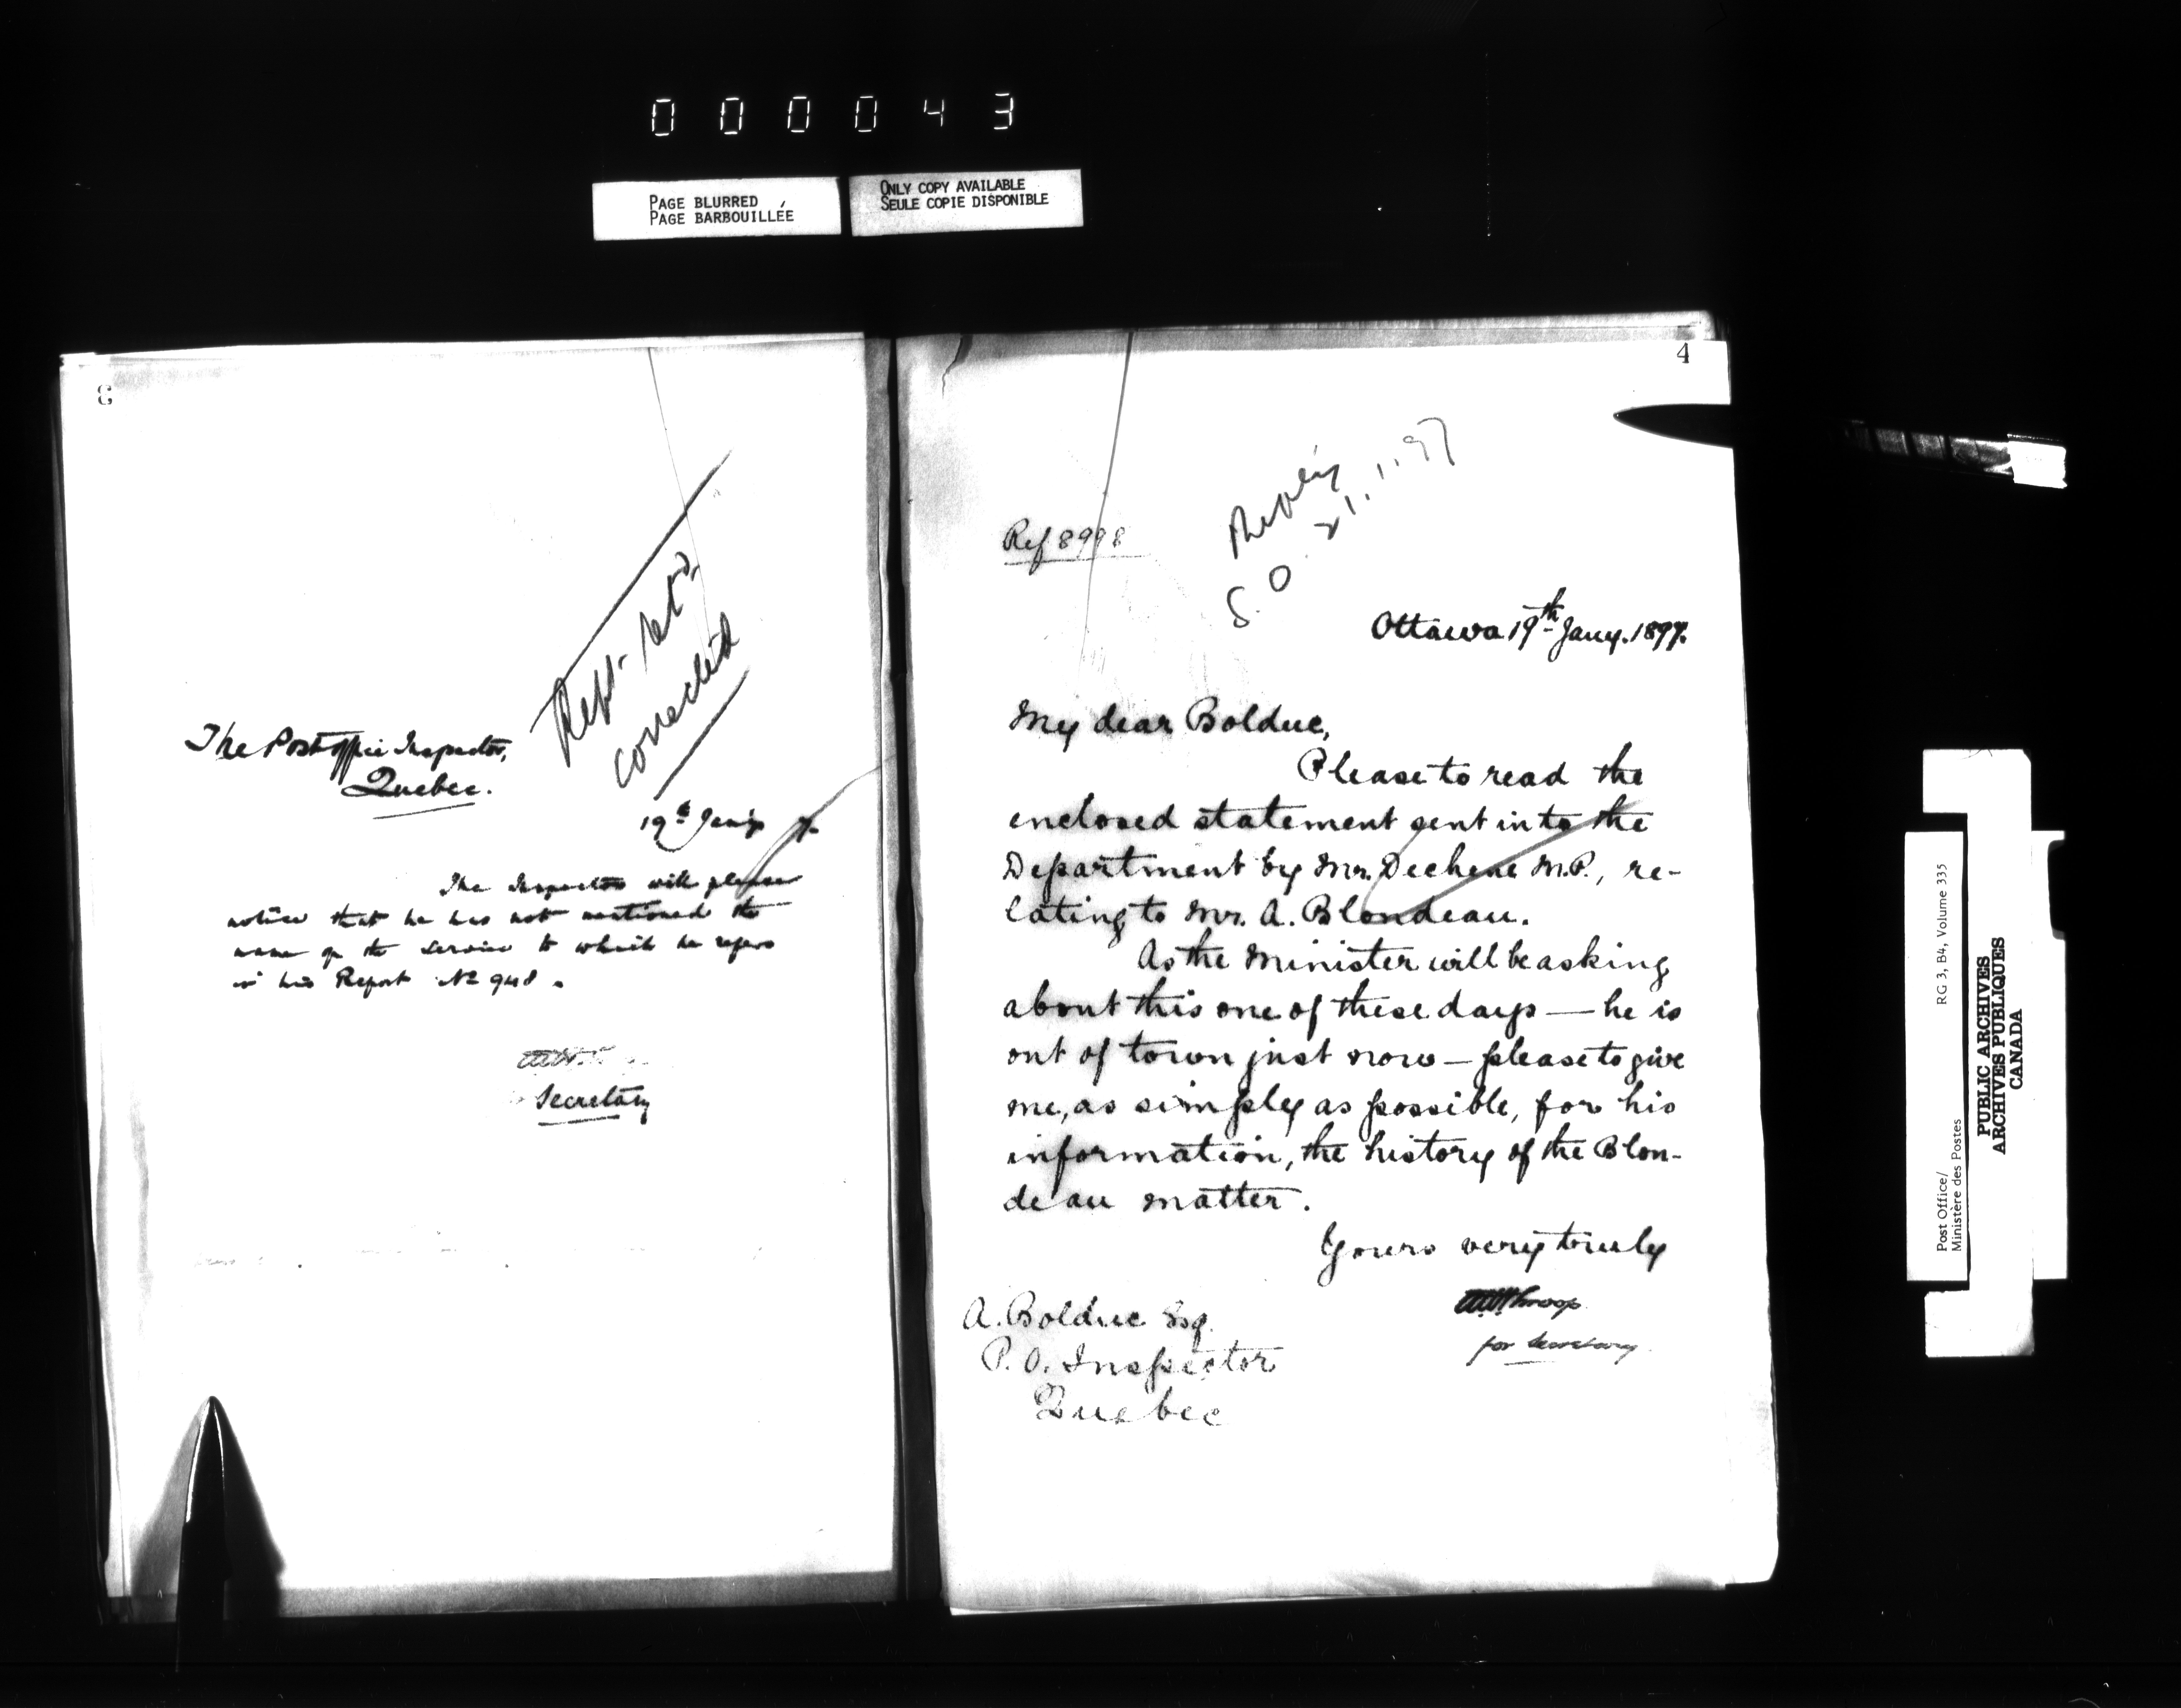 000043
PAGE BLURRED
PAGE BARBOUILLÉE
ONLY COPY AVAILABLE
SEULE COPIE DISPONIBLE
3
Rept. retd.
corrected
The Post Office Inspector,
Quebec.
19th Jany 7.
The Inspector will please
notice that he has not mentioned the
name of the service to which he refers
in his Report No 948.
Secretary
4
Ref 8998
S.O. 21.1.97
Ottawa 19th Jany. 1897.
My dear Bolduc,
Please to read the
enclosed statement sent in to the
Department by Mr. Dechene M.P., re-
lating to Mr. A. Blondeau.
As the Minister will be asking
about this one of these days — he is
out of town just now — please to give
me, as simply as possible, for his
information, the history of the Blon-
deau matter.
Yours very truly
Throop
for Secretary
A. Bolduc Esq.
P. O. Inspector
Quebec
Post Office/ RG 3, B4, Volume 335
Ministère des Postes
PUBLIC ARCHIVES
ARCHIVES PUBLIQUES
CANADA